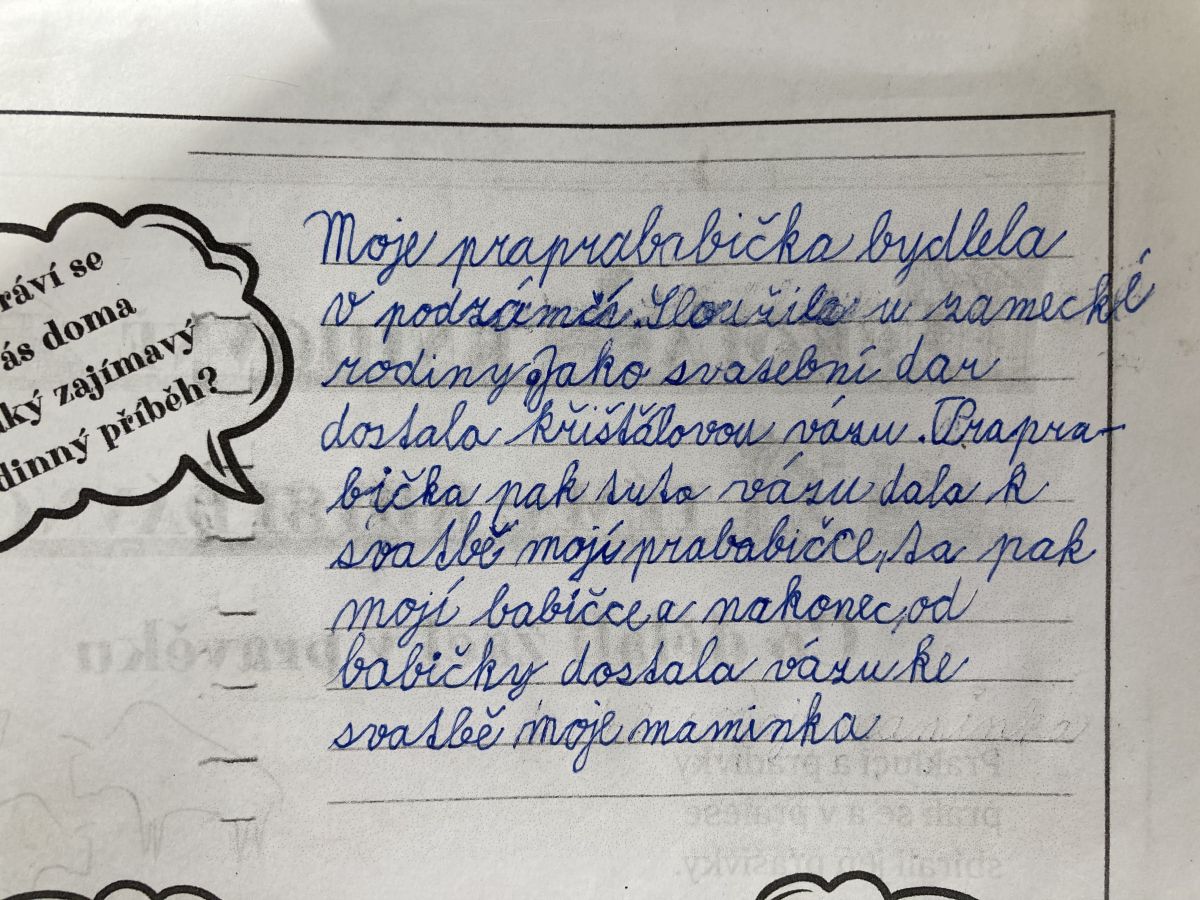 ráví se
ás doma
ký zajímavý
dinný příběh?
Moje praprababička bydlela
v podzámčí. Sloužila u zamecké
rodiny. Jako svatební dar
dostala křištálovou vázu. Prapra-
bička pak tuto vázu dala k
svatbě mojí prababičce, ta pak
mojí babičce a nakonec, od
babičky dostala vázu ke
svatbě moje maminka